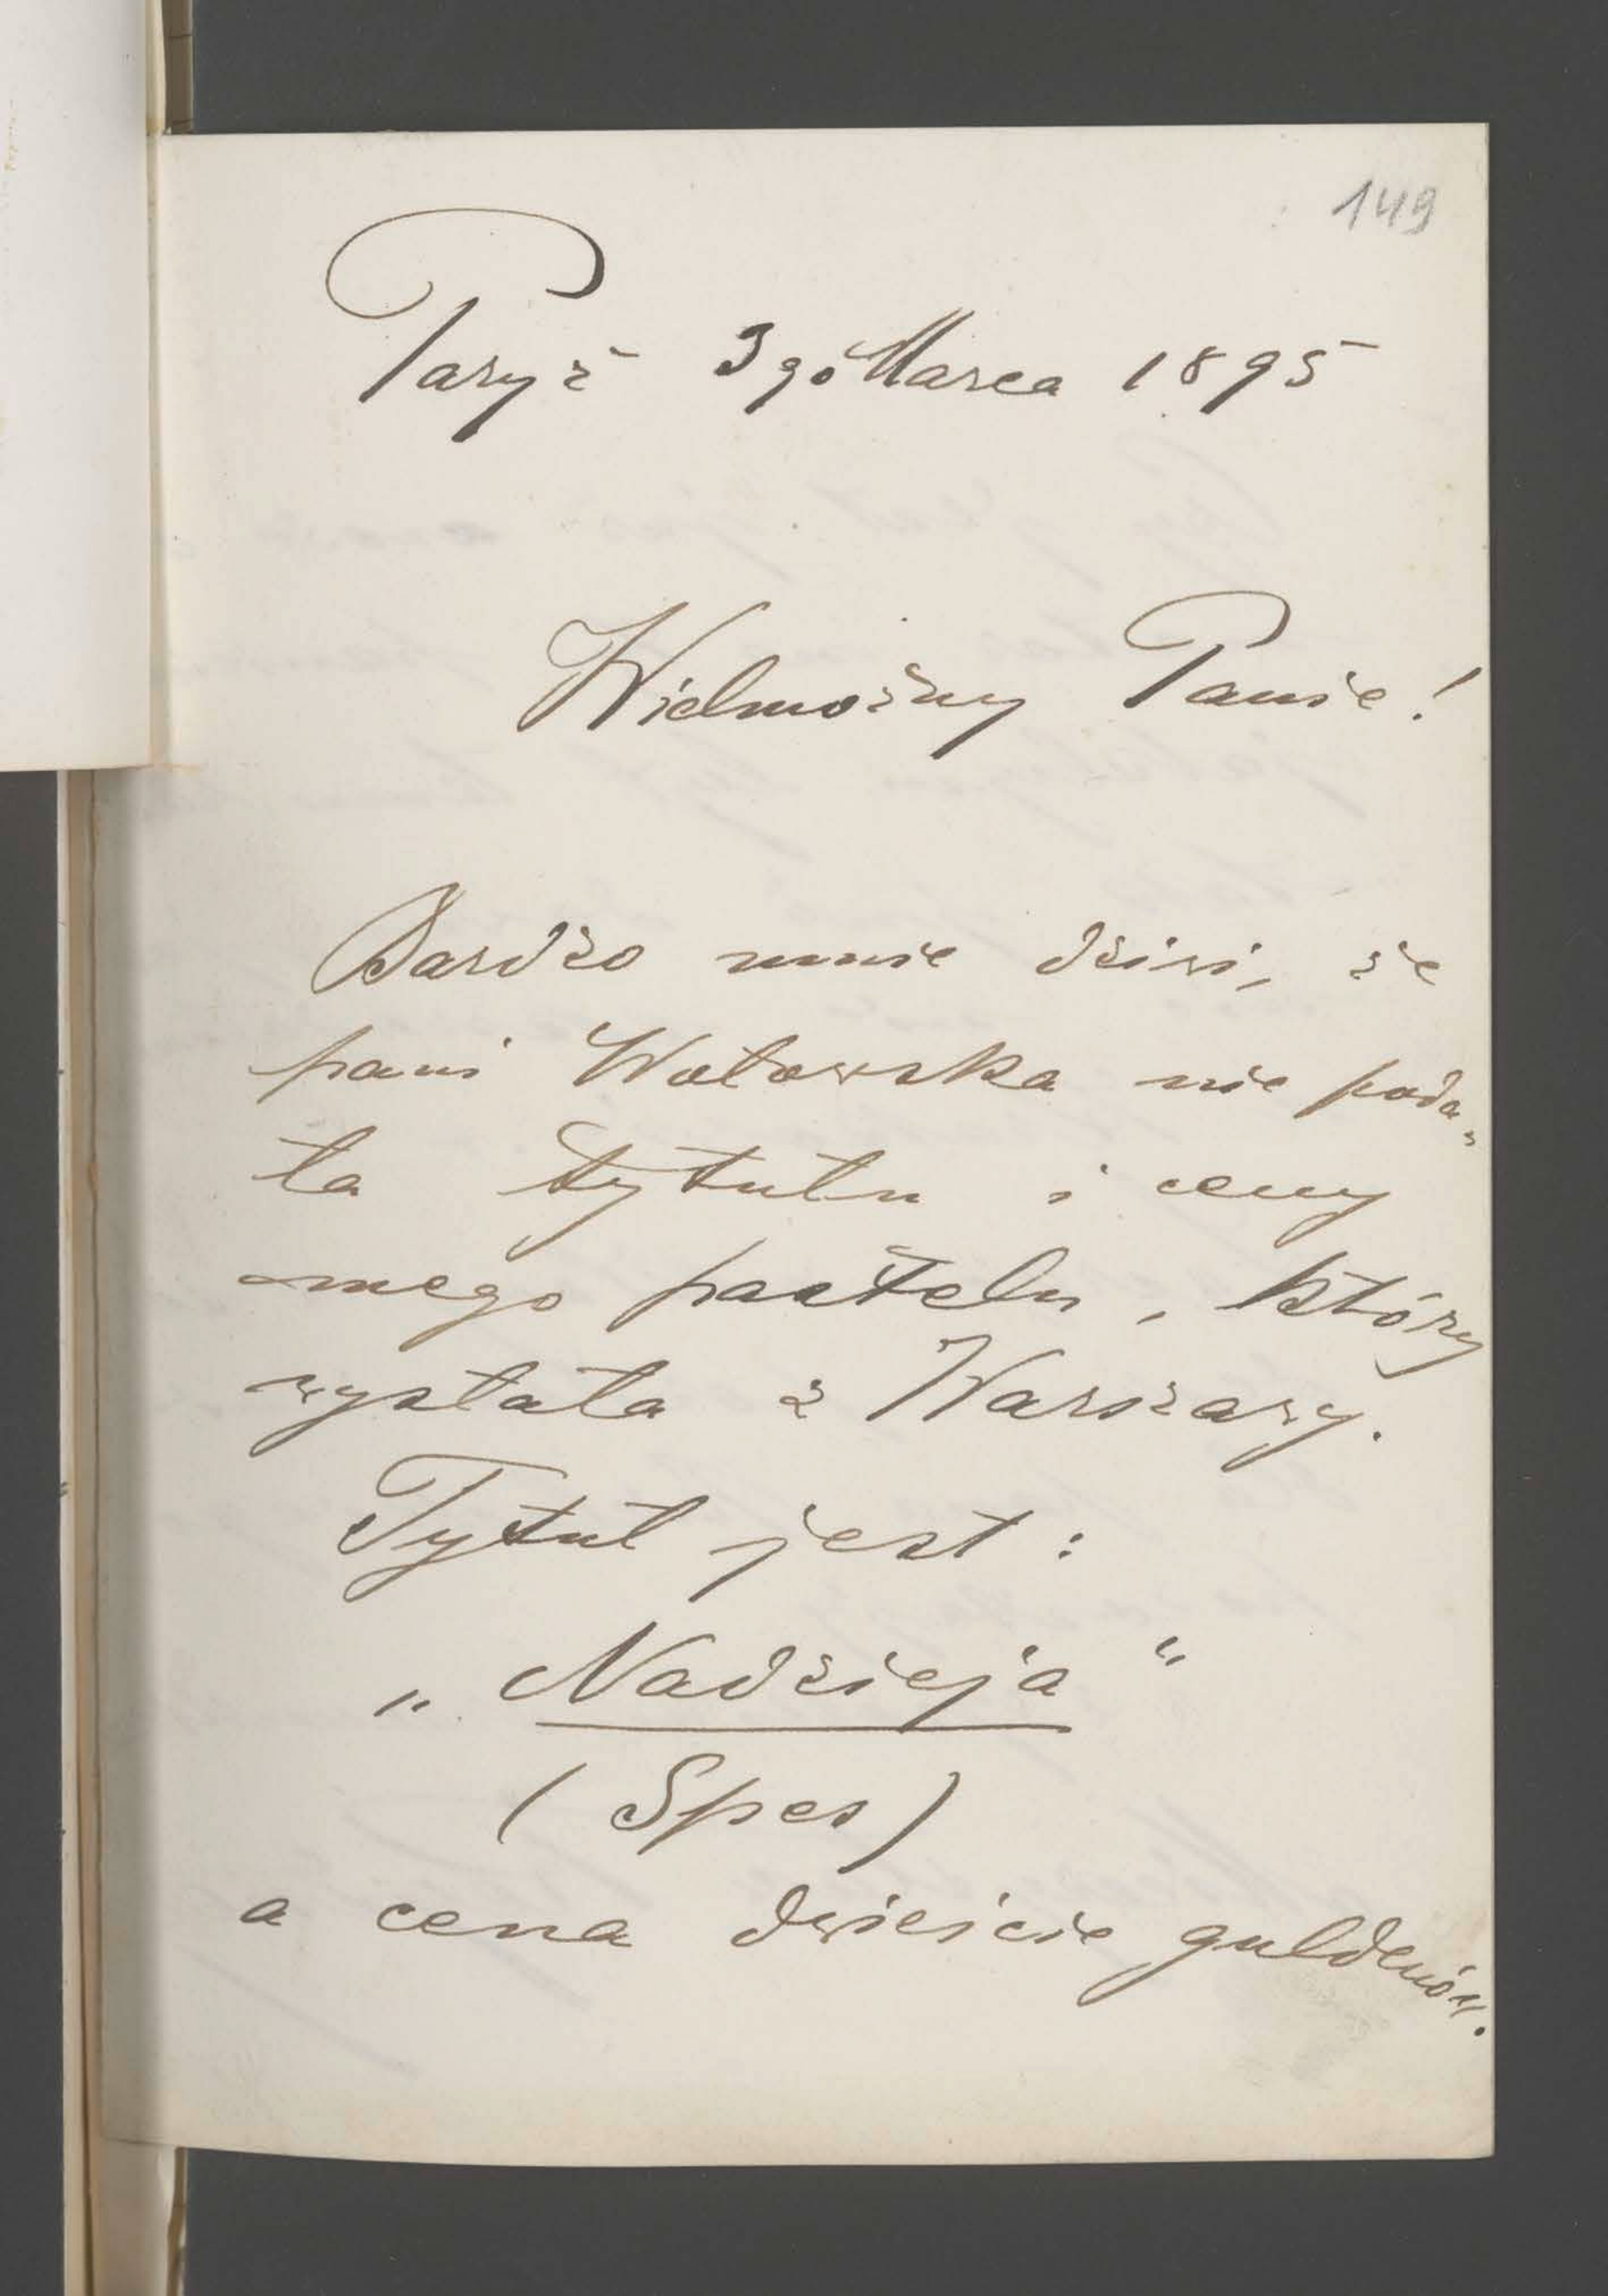 149
Paryż 3go Marca 1895
Wielmożny Panie!
Bardzo mnie dziwi, że
pani Wotowska nie poda-
ła tytułu i ceny
mego pastelu, który
wysłała z Warszawy.
Tytuł jest:
„Nadzieja“
(Spes)
a cena dwieście guldenów.